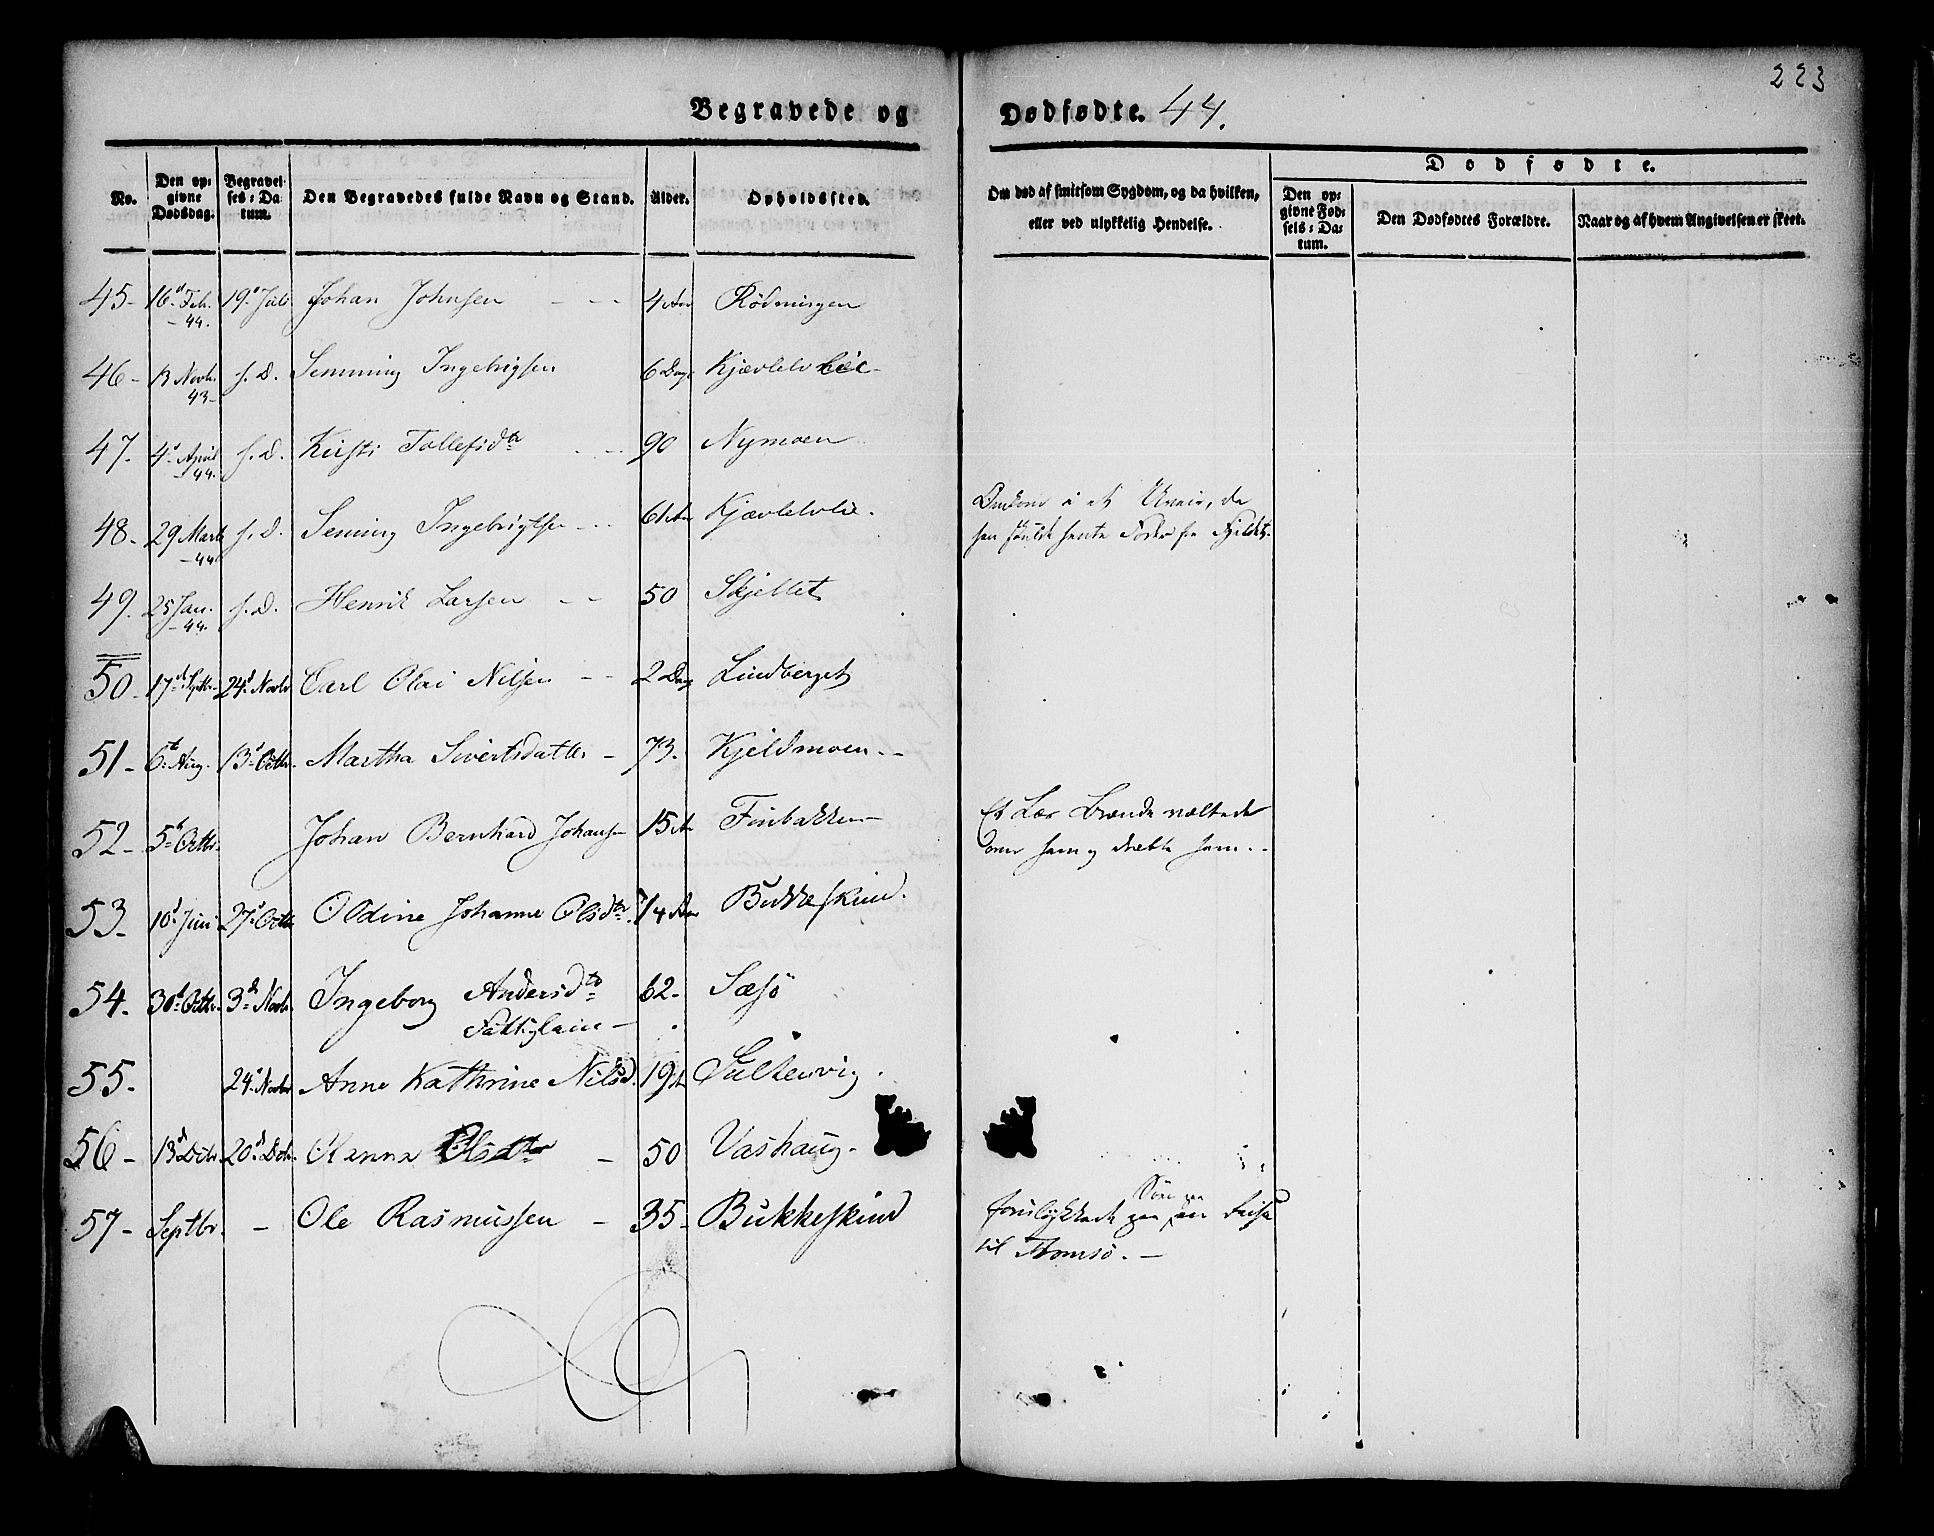 223
Begravede og Dødfødte. 44.
No.
Den opgivne Dødsdag.
Begravelses-Datum.
Den Begravedes fulde Navn og Stand.
Alder.
Opholdssted.
Om død af smitsom Sygdom, og da hvilken,
eller ved ulykkelig Hendelse.
Dødfødte.
Den opgivne Fødsels-Datum.
Den Dødfødtes Forældre.
Naar og af hvem Angivelsen er skeet.
45- 16d Feb. -44. 19d Juli Johan Johnsen - - 4 Aar Rödningen
46- 13 Novb. 43- s. D. Semming Ingebrigtsen 6 Dage Kjævlelvlie-
47. 4d April -44. s. D. Kirsti Tollefsdtr - - 90 Nymoen
48- 29 Marts -44 s. D. Seming Ingebrigtsen - - 61 Aar Kjævlelvlie. Omkom i et Uveir, da
han skulde hente Foder fra Fjeldet.
49. 25 Jan. -44. s. D. Henrik Larsen - - 50 Skjellet
50- 17d Septbr- 24d Novbr Carl Olai Nilsen - - 2 Dag Lindberget
51- 6te Aug. 13d Octbr. Martha Sivertsdatter - 73. Kjeldmoen.-
52- 5te Octbr- Johan Bernhard Johansen 15 Aar Finbakken- Et Læs Brænde væltede
over ham og dræbte ham.-
53- 10d Juni 27d Octbr Oldine Johanna Olsdtr. 14 Aar Bukkeskind.
54. 30d Octbr. 3d Novbr. Ingeborg Andersdtr 62- Sæsö
Fattiglem-
55. 24d Novbr Anne Kathrine Nilsd. 19 A Sultenvig.
56- 13d Dcbr. 20d Dcb. Olsdtr - 50 Vashaug-
57- Septbr. - Ole Rasmussen - 35- Bukkeskind forulykkede paa Reise
til Tromsö. -